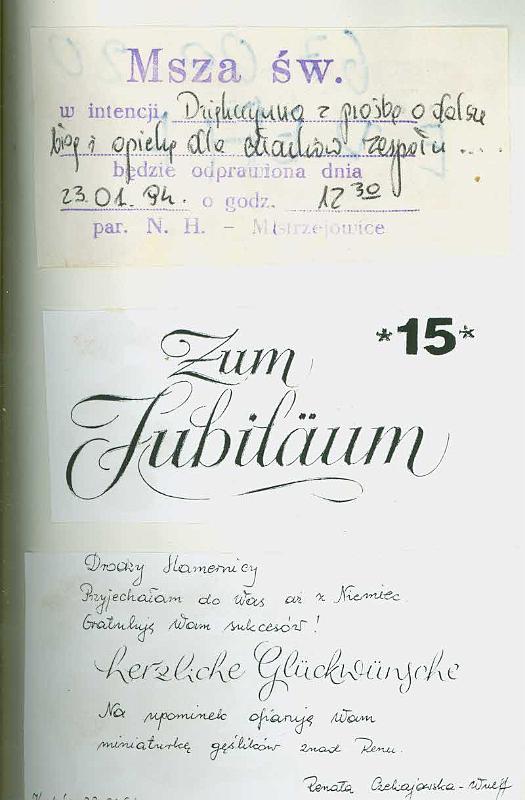 Msza św.
w intencji Dziękczynna z prośbą o dalsze
błog i opiekę dla członków zespołu ....
będzie odprawiona dnia
23.01.94. o godz. 12 30
par. N. H. - Mistrzejowice
*15*
Zum
Jubiläum
Drodzy Hamernicy
Przyjechałam do Was aż z Niemiec
Gratuluję Wam sukcesów!
herzliche Glückwünsche
Na upominek ofiaruję Wam
miniaturkę gęślików znad Renu.
Renata Czekajowska-Wulff